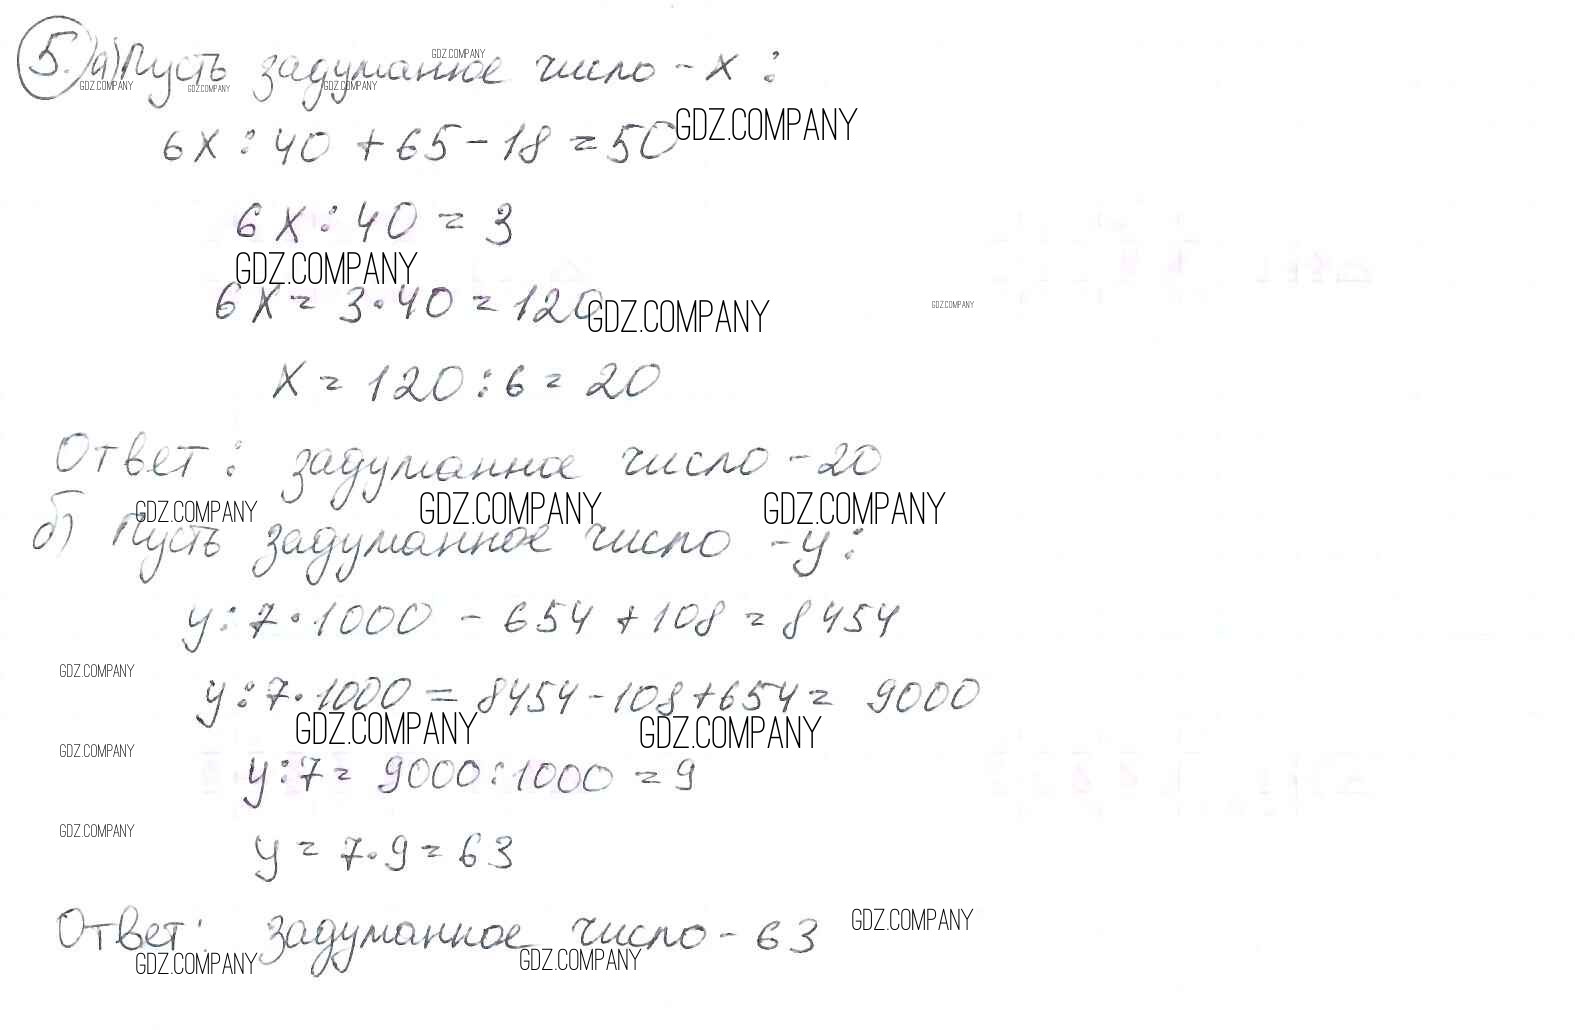 5. а) Пусть задуманное число - x :
GDZ.COMPANY
GDZ.COMPANY GDZ.COMPANY GDZ.COMPANY
6x : 40 + 65 - 18 = 50
GDZ.COMPANY
6x : 40 = 3
GDZ.COMPANY
6x = 3 · 40 = 120
GDZ.COMPANY GDZ.COMPANY
x = 120 : 6 = 20
Ответ : задуманное число - 20
GDZ.COMPANY GDZ.COMPANY GDZ.COMPANY
б) Пусть задуманное число - y :
y : 7 · 1000 - 654 + 108 = 8454
GDZ.COMPANY
y : 7 · 1000 = 8454 - 108 + 654 = 9000
GDZ.COMPANY GDZ.COMPANY
GDZ.COMPANY
y : 7 = 9000 : 1000 = 9
GDZ.COMPANY
y = 7 · 9 = 63
Ответ : задуманное число - 63
GDZ.COMPANY
GDZ.COMPANY GDZ.COMPANY